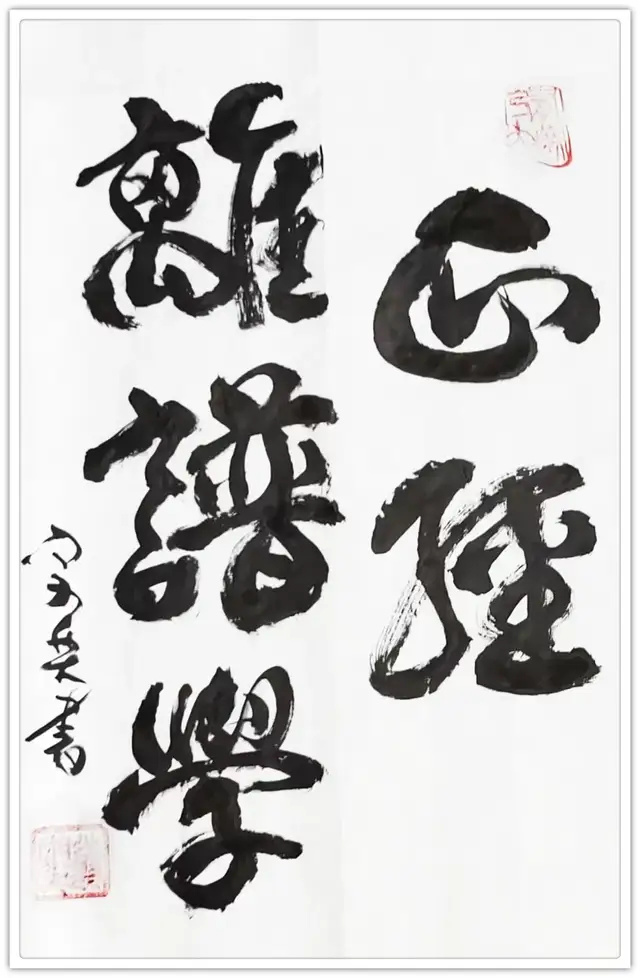 正經
離譜學
書